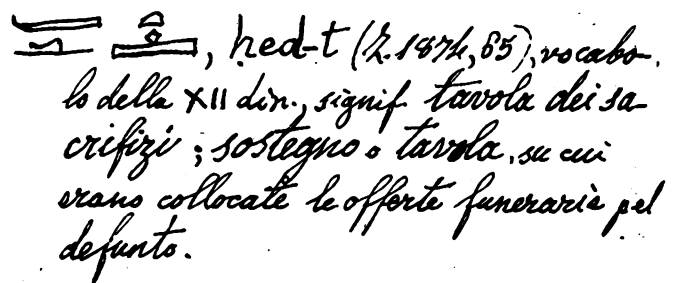 , hed-t (Z. 1874, 65), vocabo-
lo della XII din., signif. tavola dei sa-
crifizi; sostegno o tavola, su cui
erano collocate le offerte funerarie pel
defunto.